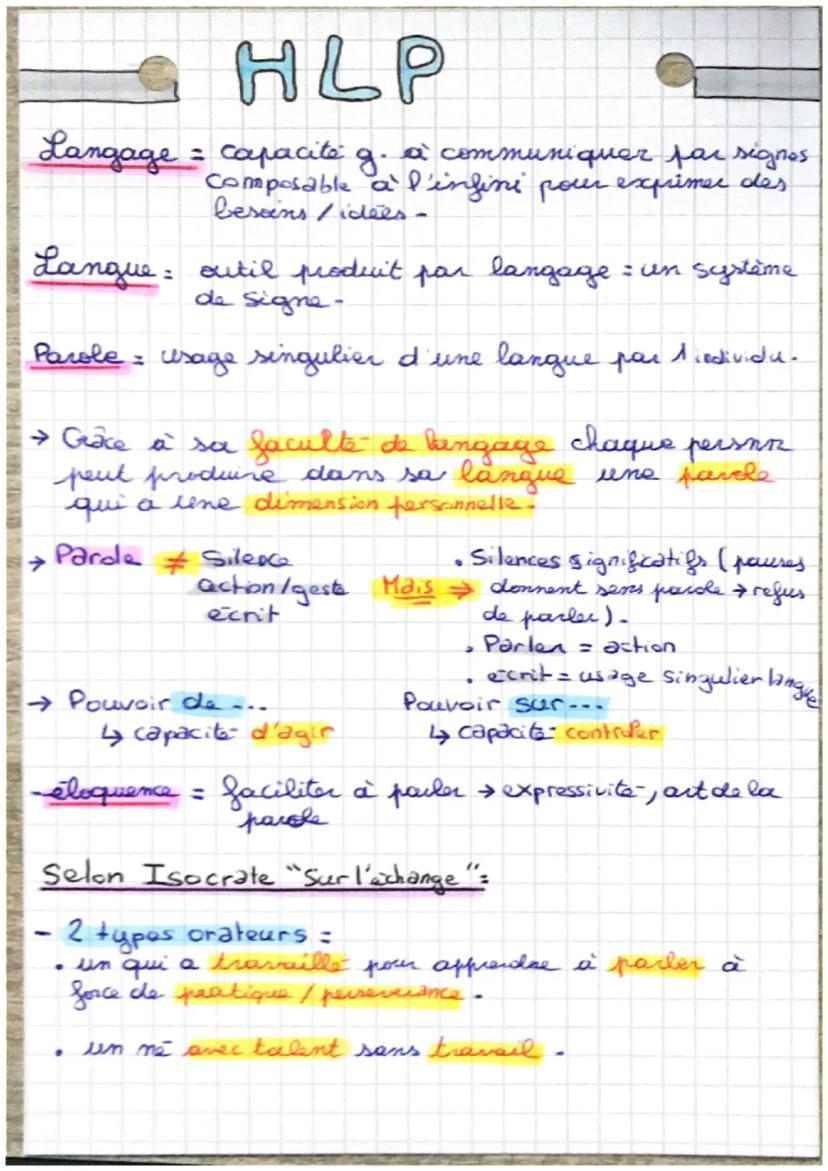 HLP
Langage = capacité g. à communiquer par signes
composable à l'infini pour exprimer des
besoins / idées -
Langue = outil produit par langage = un système
de signe -
Parole = usage singulier d'une langue par 1 individu.
→ Grâce à sa faculté de langage chaque personne
peut produire dans sa langue une parole
qui a une dimension personnelle.
→ Parole ≠ Silence
action/geste
écrit
Mais ⇒
• Silences significatifs (pauses
donnent sens parole → refus
de parler).
• Parler = action
• écrit = usage singulier langue
→ Pouvoir de ... Pouvoir sur...
↳ capacité d'agir ↳ capacité contrôler
- éloquence = faciliter à parler → expressivité, art de la
parole
Selon Isocrate "Sur l'échange" :
- 2 types orateurs :
• un qui a travaillé pour apprendre à parler à
force de pratique / perseverance.
• un né avec talent sans travail.